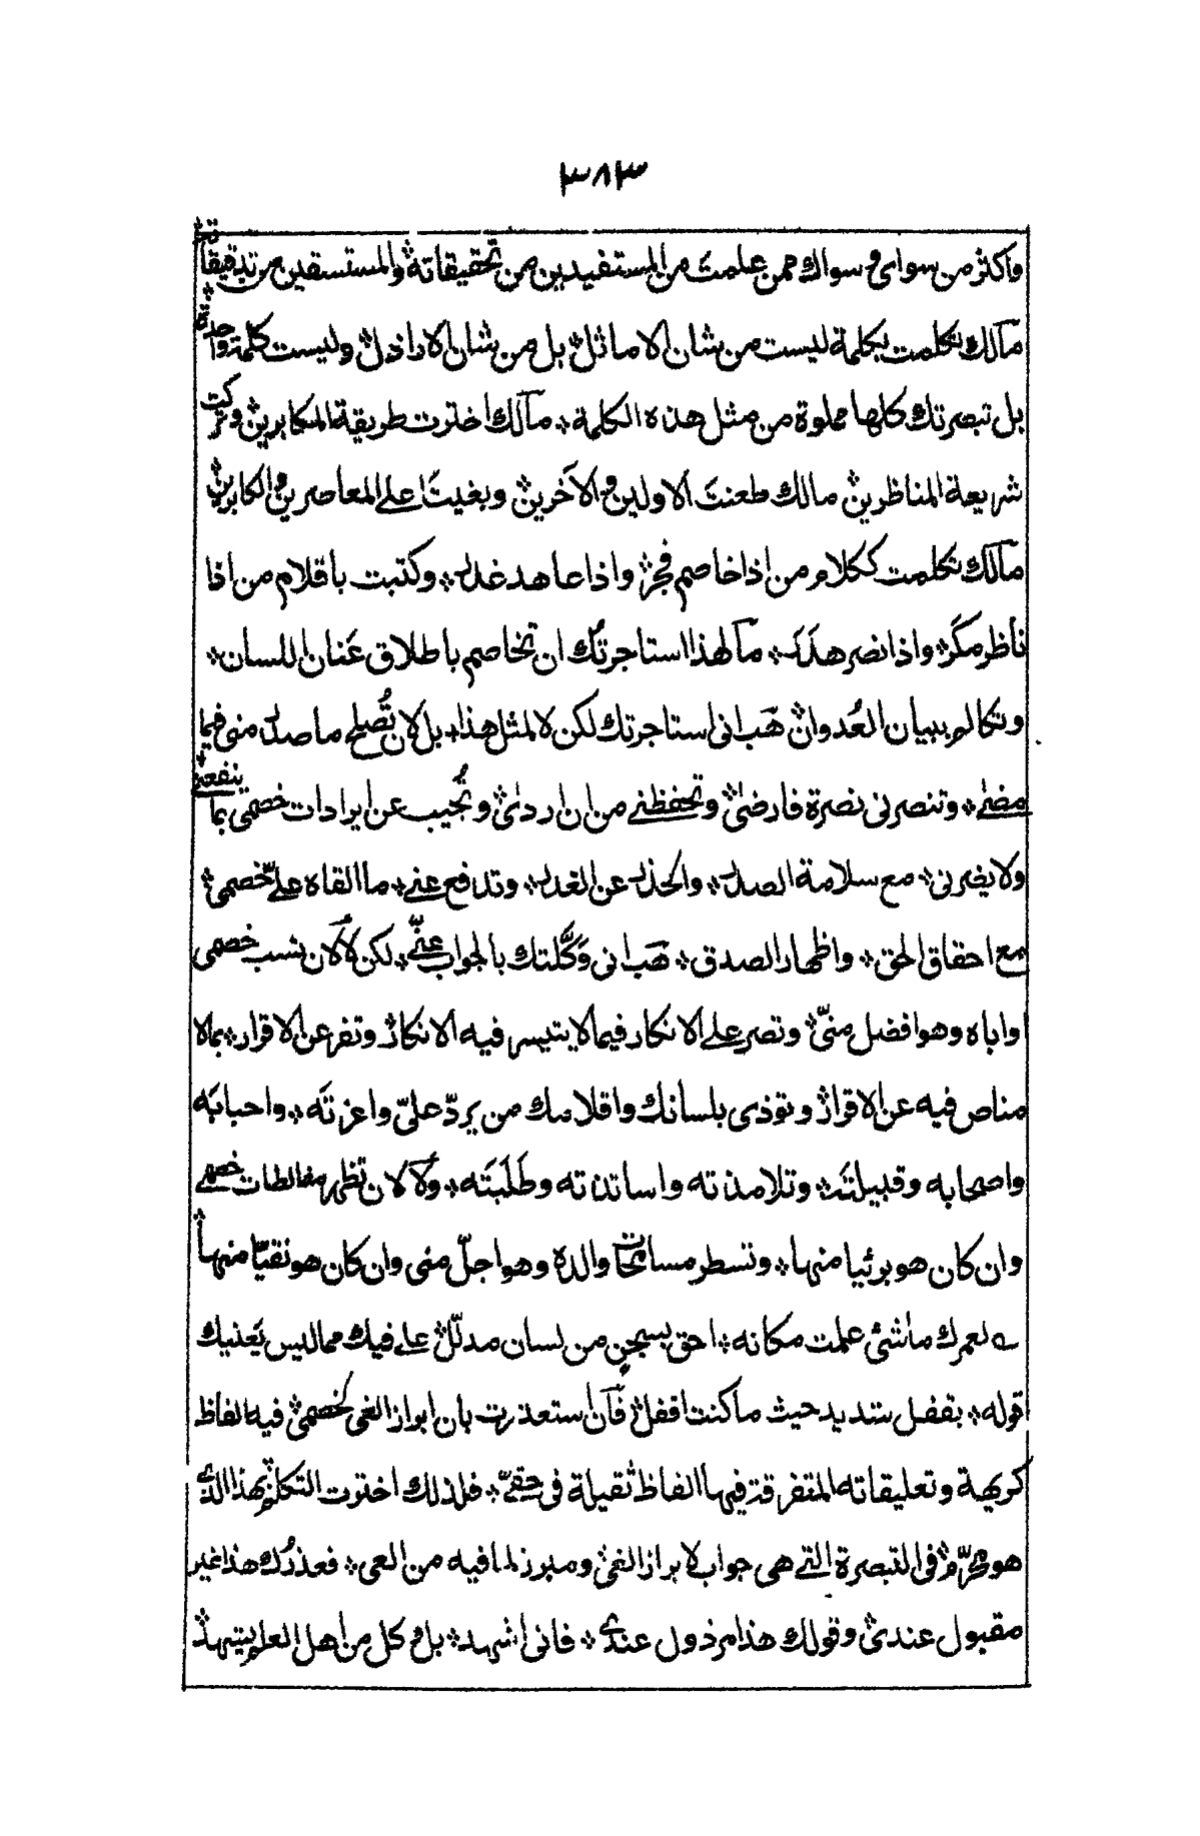 ٣٨٣
واكثر من سواى وسواك ممن علمت من المستفيدين من تحقيقاته ؞ والمستسقين من تدقيقاته ؞
مالك تكلمت بكلمة ليست من شان الاماثل ؞ بل من شان الاراذل ؞ وليست كلمة واحدة
بل تبصرتك كلها مملوة من مثل هذه الكلمة ؞ مالك اخترت طريقة المكابرين ؞ وتركت
شريعة المناظرين ؞ مالك طعنت الاولين والآخرين ؞ وبغيت على المعاصرين والكابرين ؞
مالك تكلمت ككلام من اذا خاصم فجر ؞ واذا عاهد غدر ؞ وكتبت باقلام من اذا
ناظر مكر ؞ واذا نصر هذر ؞ ما لهذا استاجرتك ان تخاصم باطلاق عنان اللسان ؞
وتكالم ببيان العدوان ؞ هب انى استاجرتك لكن لا لمثل هذا ؞ بل لان تصلح ما صدر منى فيما
مضى ؞ وتنصرنى نصرة فارضى ؞ وتحفظنى من ان اردى ؞ وتجيب عن ايرادات خصمى بما ينفعنى ؞
ولا يضرنى ؞ مع سلامة الصدر ؞ والحذر عن الغدر ؞ وتدفع عنى ؞ ما القاه علىّ خصمى ؞
مع احقاق الحق ؞ واظهار الصدق ؞ هب انى وكّلتك بالجواب عنّى ؞ لكن لا لان تسب خصمى
او اباه وهو افضل منّى ؞ وتصر على الانكار فيما لا يتيسر فيه الانكار ؞ وتفر عن الاقرار ؞ بما لا
مناص فيه عن الاقرار ؞ وتوذى بلسانك واقلامك من يردّ علىّ واعزته ؞ واحبابه
واصحابه وقبيلته ؞ وتلامذته واساتذته وطَلَبَته ؞ ولا لان تظهر مغالطات خصمى
وان كان هو بريئا منها ؞ وتسطر مسامحات والده وهو اجلّ منى وان كان هو نقيّا منها ؞
لعمرك ما شئ علمت مكانه ؞ احق بسجن من لسان مدلّل ؞ على فيك مما ليس يعنيك
قوله ؞ بقفل شديد حيث ما كنت اقفل ؞ فان استعذرت بان ابراز الغى لخصمى ؞ فيه الفاظ
كريهة وتعليقاته المتفرقة فيها الفاظ ثقيلة فى حقىّ ؞ فلذلك اخترت التكلم بهذا الذى
هو محرّم ؞ فى التبصرة التى هى جواب لابراز الغى ؞ ومبرز لما فيه من العى ؞ فعذرك هذا غير
مقبول عندى ؞ وقولك هذا مرذول عندى ؞ فانى اشهد ؞ بل وكل من اهل العلم يشهد ؞